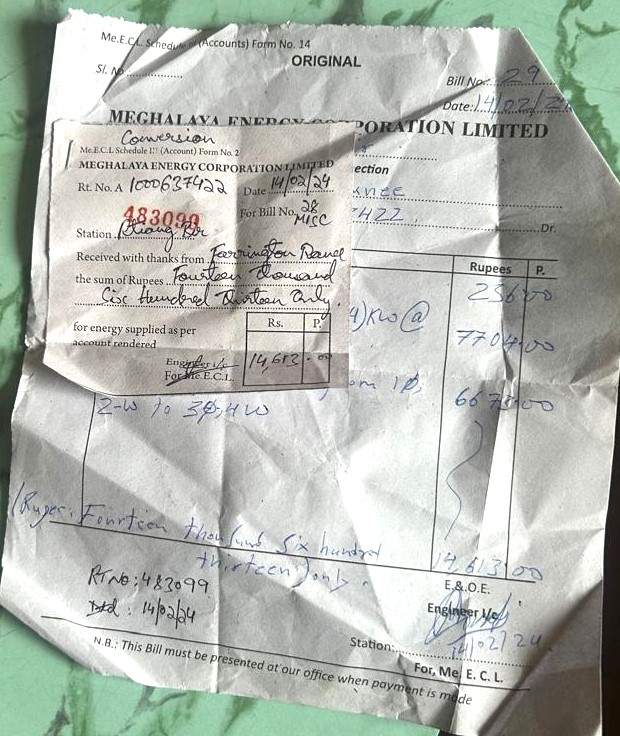 Me.E.C.L. Schedule (Accounts) Form No. 14
ORIGINAL
Sl. No
Bill No.: 29
Date: 14/02/24
MEGHALAYA ENERGY CORPORATION LIMITED
ection
7422
Dr.
Rupees P.
256 00
4) KW @
7704.00
om 1φ,
6673.00
2-W to 3φ, 4W
(Rupees: Fourteen thousand six hundred
thirteen) only.
14,613.00
Rt No: 483099
Dtd: 14/02/24
E.&O.E.
Engineer I/c
14/02/24
Station:
For, Me. E. C. L.
N.B.: This Bill must be presented at our office when payment is made
Conversion
Me.E.C.L Schedule III (Account) Form No. 2
MEGHALAYA ENERGY CORPORATION LIMITED
Rt. No. A 1000637422 Date 14/02/24
483099
For Bill No. 28
MISC
Station
Received with thanks from Farrington
the sum of Rupees Fourteen thousand
Six Hundred Thirteen Only.
for energy supplied as per
account rendered
Rs. P.
14,613.00
Engineer I/c
For Me.E.C.L.